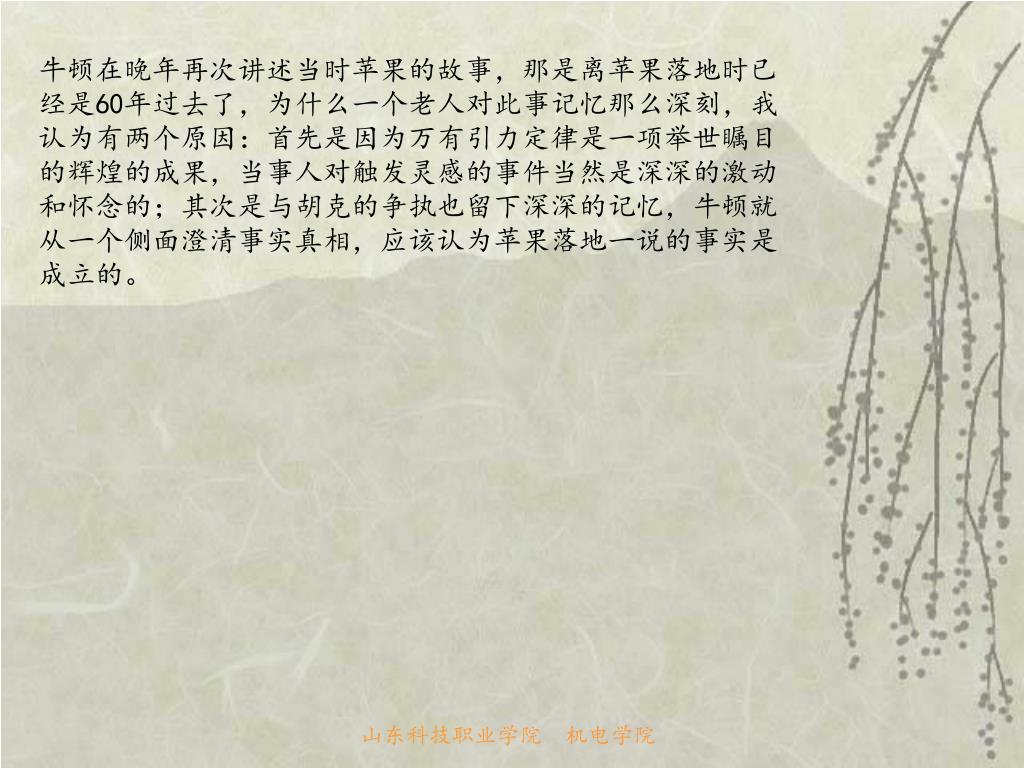 牛顿在晚年再次讲述当时苹果的故事，那是离苹果落地时已
经是60年过去了，为什么一个老人对此事记忆那么深刻，我
认为有两个原因：首先是因为万有引力定律是一项举世瞩目
的辉煌的成果，当事人对触发灵感的事件当然是深深的激动
和怀念的；其次是与胡克的争执也留下深深的记忆，牛顿就
从一个侧面澄清事实真相，应该认为苹果落地一说的事实是
成立的。
山东科技职业学院 机电学院